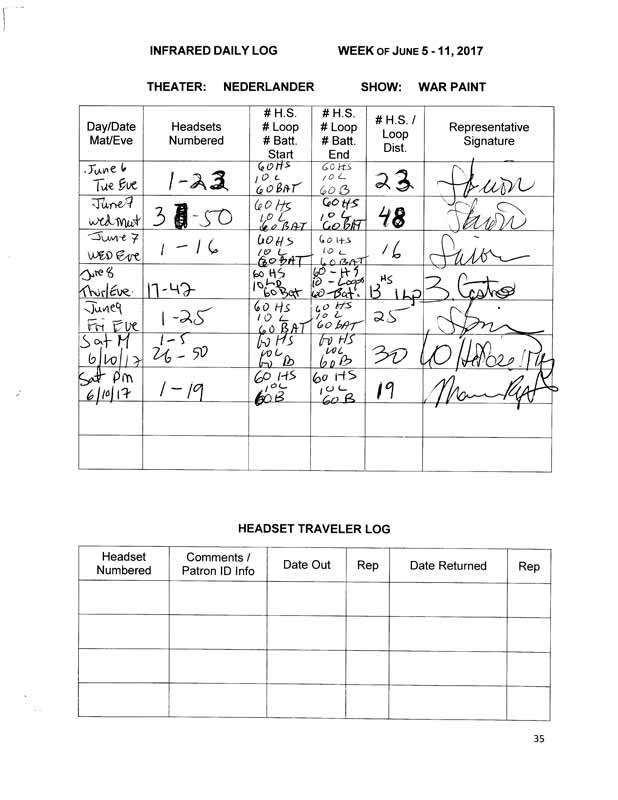 INFRARED DAILY LOG WEEK OF JUNE 5 - 11, 2017
THEATER: NEDERLANDER SHOW: WAR PAINT
Day/Date
Mat/Eve
Headsets
Numbered
# H.S.
# Loop
# Batt.
Start
# H.S.
# Loop
# Batt.
End
# H.S. /
Loop
Dist.
Representative
Signature
June 6
Tue Eve
1-23
60HS
10 L
60BAT
60HS
10 L
60B
23
June 7
Wed Mat
3 -50
60HS
10 L
60BAT
60HS
10 L
60BAT
48
June 7
WED Eve
1 - 16
60HS
10 L
60BAT
60HS
10 L
60BAT
16
June 8
Thur/Eve
17-42
60 HS
10 LP
60 Bat
60 - HS
10 - Loops
60 - Bat.
HS
1 LP
B. Castro
June 9
Fri EVE
1-25
60 HS
10 L
60 BAT
60 HS
10 L
60 BAT
25
Sat M
6/10/17
1-5
26-50
60 HS
10L
60 B
60 HS
10L
60B
30
Sat pm
6/10/17
1-19
60 HS
10L
60B
60 HS
10L
60 B
19
HEADSET TRAVELER LOG
Headset
Numbered
Comments /
Patron ID Info
Date Out
Rep
Date Returned
Rep
35